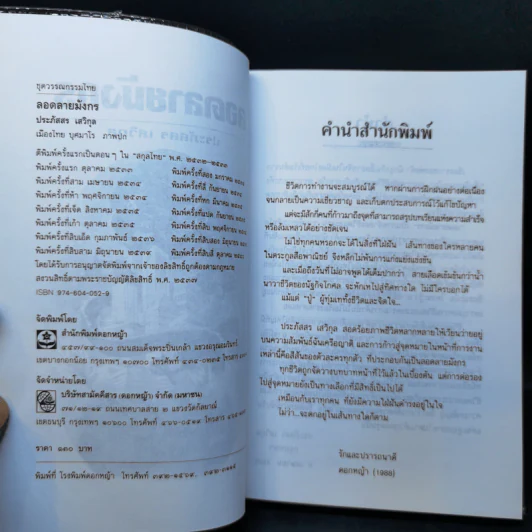 ชุดวรรณกรรมไทย
ลอดลายมังกร
ประภัสสร เสวิกุล
เมืองไทย บุศมาโร ภาพปก
ตีพิมพ์ครั้งแรกเป็นตอน ๆ ใน "สกุลไทย" พ.ศ. ๒๕๓๒-๒๕๓๓
พิมพ์ครั้งแรก ตุลาคม ๒๕๓๓ พิมพ์ครั้งที่สอง มกราคม
พิมพ์ครั้งที่สาม เมษายน ๒๕๓๔ พิมพ์ครั้งที่สี่ กันยายน
พิมพ์ครั้งที่ห้า พฤศจิกายน ๒๕๓๔ พิมพ์ครั้งที่หก มีนาคม
พิมพ์ครั้งที่เจ็ด สิงหาคม ๒๕๓๕ พิมพ์ครั้งที่แปด กันยายน
พิมพ์ครั้งที่เก้า ตุลาคม ๒๕๓๕ พิมพ์ครั้งที่สิบ พฤศจิกายน
พิมพ์ครั้งที่สิบเอ็ด กุมภาพันธ์ ๒๕๓๖ พิมพ์ครั้งที่สิบสอง มิถุนายน
พิมพ์ครั้งที่สิบสาม มิถุนายน ๒๕๓๙ พิมพ์ครั้งที่สิบสี่
โดยได้รับการอนุญาตจัดพิมพ์จากเจ้าของลิขสิทธิ์ถูกต้องตามกฎหมาย
สงวนสิทธิ์ตามพระราชบัญญัติลิขสิทธิ์ พ.ศ. ๒๕๓๗
ISBN 974-604-052-9
จัดพิมพ์โดย
สำนักพิมพ์ดอกหญ้า
ถนนสมเด็จพระปิ่นเกล้า แขวงอรุณอมรินทร์
เขตบางกอกน้อย กรุงเทพฯ ๑๐๗๐๐ โทรศัพท์
จัดจำหน่ายโดย
บริษัทสามัคคีสาร (ดอกหญ้า) จำกัด (มหาชน)
ถนนเทศบาลสาย ๒ แขวงวัดกัลยาณ์
เขตธนบุรี กรุงเทพฯ ๑๐๖๐๐ โทรศัพท์ โทรสาร
ราคา ๑๓๐ บาท
พิมพ์ที่ โรงพิมพ์ดอกหญ้า โทรศัพท์
คำนำสำนักพิมพ์
ชีวิตการทำงานจะสมบูรณ์ได้ หากผ่านการฝึกฝนอย่างต่อเนื่อง
จนกลายเป็นความเชี่ยวชาญ และเก็บตกประสบการณ์ไว้แก้ไขปัญหา
แต่จะมีสักกี่คนที่ก้าวมาถึงจุดที่สามารถสรุปบทเรียนแห่งความสำเร็จ
หรือล้มเหลวได้อย่างชัดเจน
ไม่ใช่ทุกคนหรอกจะได้ในสิ่งที่ใฝ่ฝัน เส้นทางของใครหลายคน
ในตระกูลสือพาณิชย์ จึงหลีกไม่พ้นการแก่งแย่งแข่งขัน
และเมื่อถึงวันที่ไม่อาจพูดได้เต็มปากว่า สายเลือดเข้มข้นกว่าน้ำ
นาวาชีวิตของนัฐกิจโภคล จะพักเทไปสู่ทิศทางใด ไม่มีใครบอกได้
แม้แต่ "ปู่" ผู้ทุ่มเททั้งชีวิตและจิตใจ...
ประภัสสร เสวิกุล สอดร้อยภาพชีวิตหลากหลายให้เวียนว่ายอยู่
บนความสัมพันธ์ฉันเครือญาติ และการก้าวสู่จุดหมายในหน้าที่การงาน
เหล่านี้คือสีสันของตัวละครทุกตัว ที่ประกอบกันเป็นลอดลายมังกร
ทุกชีวิตถูกจัดวางบทบาทหน้าที่ไว้แล้วในเบื้องต้น แต่การต่อรอง
ไปสู่จุดหมายยังเป็นทางเลือกที่มีสิทธิ์เป็นไปได้
เหมือนกับเราทุกคน ที่ยังมีความใฝ่ฝันดำรงอยู่ในใจ
ไม่ว่า...จะตกอยู่ในเส้นทางใดก็ตาม
รักและปรารถนาดี
ดอกหญ้า (1988)